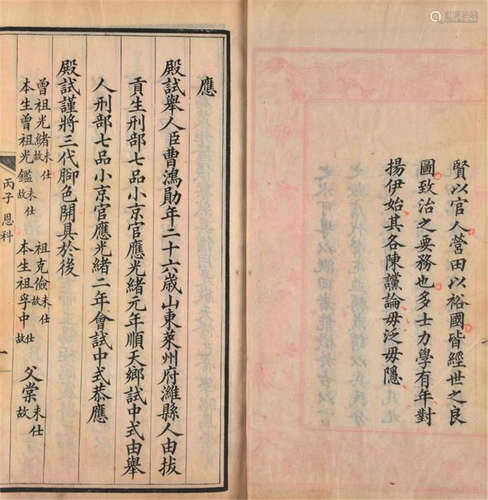 賢以官人營田以裕國皆經世之良
圖致治之要務也多士力學有年對
揚伊始其各陳讜論毋泛毋隱
應
殿試舉人臣曹鴻勛年二十六歲山東萊州府濰縣人由拔
貢生刑部七品小京官應光緒元年順天鄉試中式由舉
人刑部七品小京官應光緒二年會試中式恭應
殿試謹將三代腳色開具於後
曾祖光緒未仕故 祖克儉未仕故
本生曾祖光鑑未仕故 本生祖孚中未仕故 父棠未仕故
丙子 恩科 一